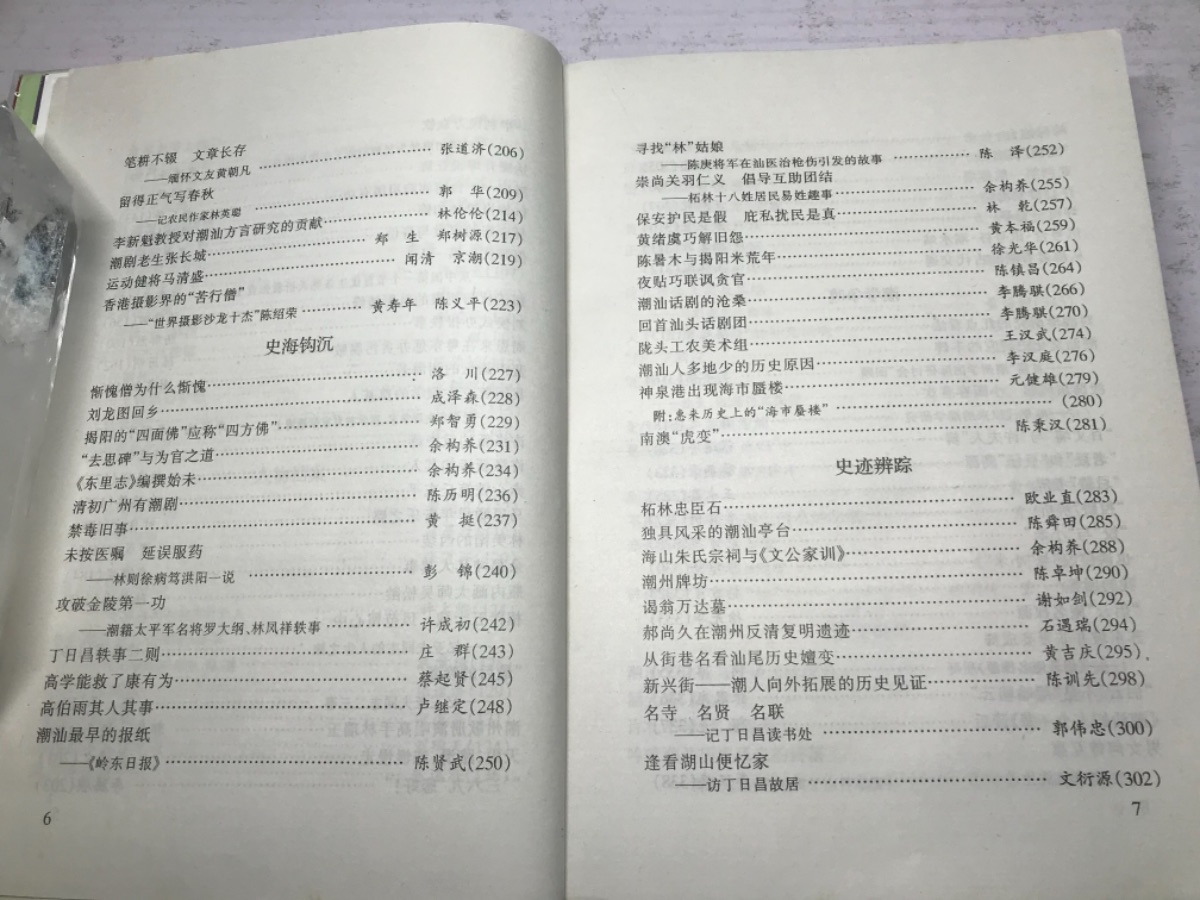 笔耕不辍　文章长存
——缅怀文友黄朝凡……………………张道济(206)
留得正气写春秋
——记农民作家林英聪……………………郭　华(209)
李新魁教授对潮汕方言研究的贡献……………林伦伦(214)
潮剧老生张长城……………………郑　生　郑树源(217)
运动健将马清盛……………………闻清　京潮(219)
香港摄影界的“苦行僧”
——“世界摄影沙龙十杰”陈绍荣…………黄寿年　陈义平(223)
史海钩沉
惭愧僧为什么惭愧……………………洛　川(227)
刘龙图回乡……………………成泽森(228)
揭阳的“四面佛”应称“四方佛”……………郑智勇(229)
“去思碑”与为官之道……………………余构养(231)
《东里志》编撰始末……………………余构养(234)
清初广州有潮剧……………………陈历明(236)
禁毒旧事……………………黄　挺(237)
未按医嘱　延误服药
——林则徐病笃洪阳一说……………………彭　锦(240)
攻破金陵第一功
——潮籍太平军名将罗大纲、林凤祥轶事……………许成初(242)
丁日昌轶事二则……………………庄　群(243)
高学能救了康有为……………………蔡起贤(245)
高伯雨其人其事……………………卢继定(248)
潮汕最早的报纸
——《岭东日报》……………………陈贤武(250)
6
寻找“林”姑娘
——陈赓将军在汕医治枪伤引发的故事……………陈　泽(252)
崇尚关羽仁义　倡导互助团结
——柘林十八姓居民易姓趣事……………余构养(255)
保安护民是假　庇私扰民是真……………林　乾(257)
黄绪虞巧解旧怨……………………黄本福(259)
陈暑木与揭阳米荒年……………………徐光华(261)
夜贴巧联讽贪官……………………陈镇昌(264)
潮汕话剧的沧桑……………………李腾骐(266)
回首汕头话剧团……………………李腾骐(270)
陇头工农美术组……………………王汉武(274)
潮汕人多地少的历史原因……………………李汉庭(276)
神泉港出现海市蜃楼……………………元健雄(279)
附：惠来历史上的“海市蜃楼”……………………(280)
南澳“虎变”……………………陈秉汉(281)
史迹辨踪
柘林忠臣石……………………欧业直(283)
独具风采的潮汕亭台……………………陈舜田(285)
海山朱氏宗祠与《文公家训》……………………余构养(288)
潮州牌坊……………………陈卓坤(290)
谒翁万达墓……………………谢如剑(292)
郝尚久在潮州反清复明遗迹……………………石遇瑞(294)
从街巷名看汕尾历史嬗变……………………黄吉庆(295)
新兴街——潮人向外拓展的历史见证……………陈训先(298)
名寺　名贤　名联
——记丁日昌读书处……………………郭伟忠(300)
逢看湖山便忆家
——访丁日昌故居……………………文衍源(302)
7